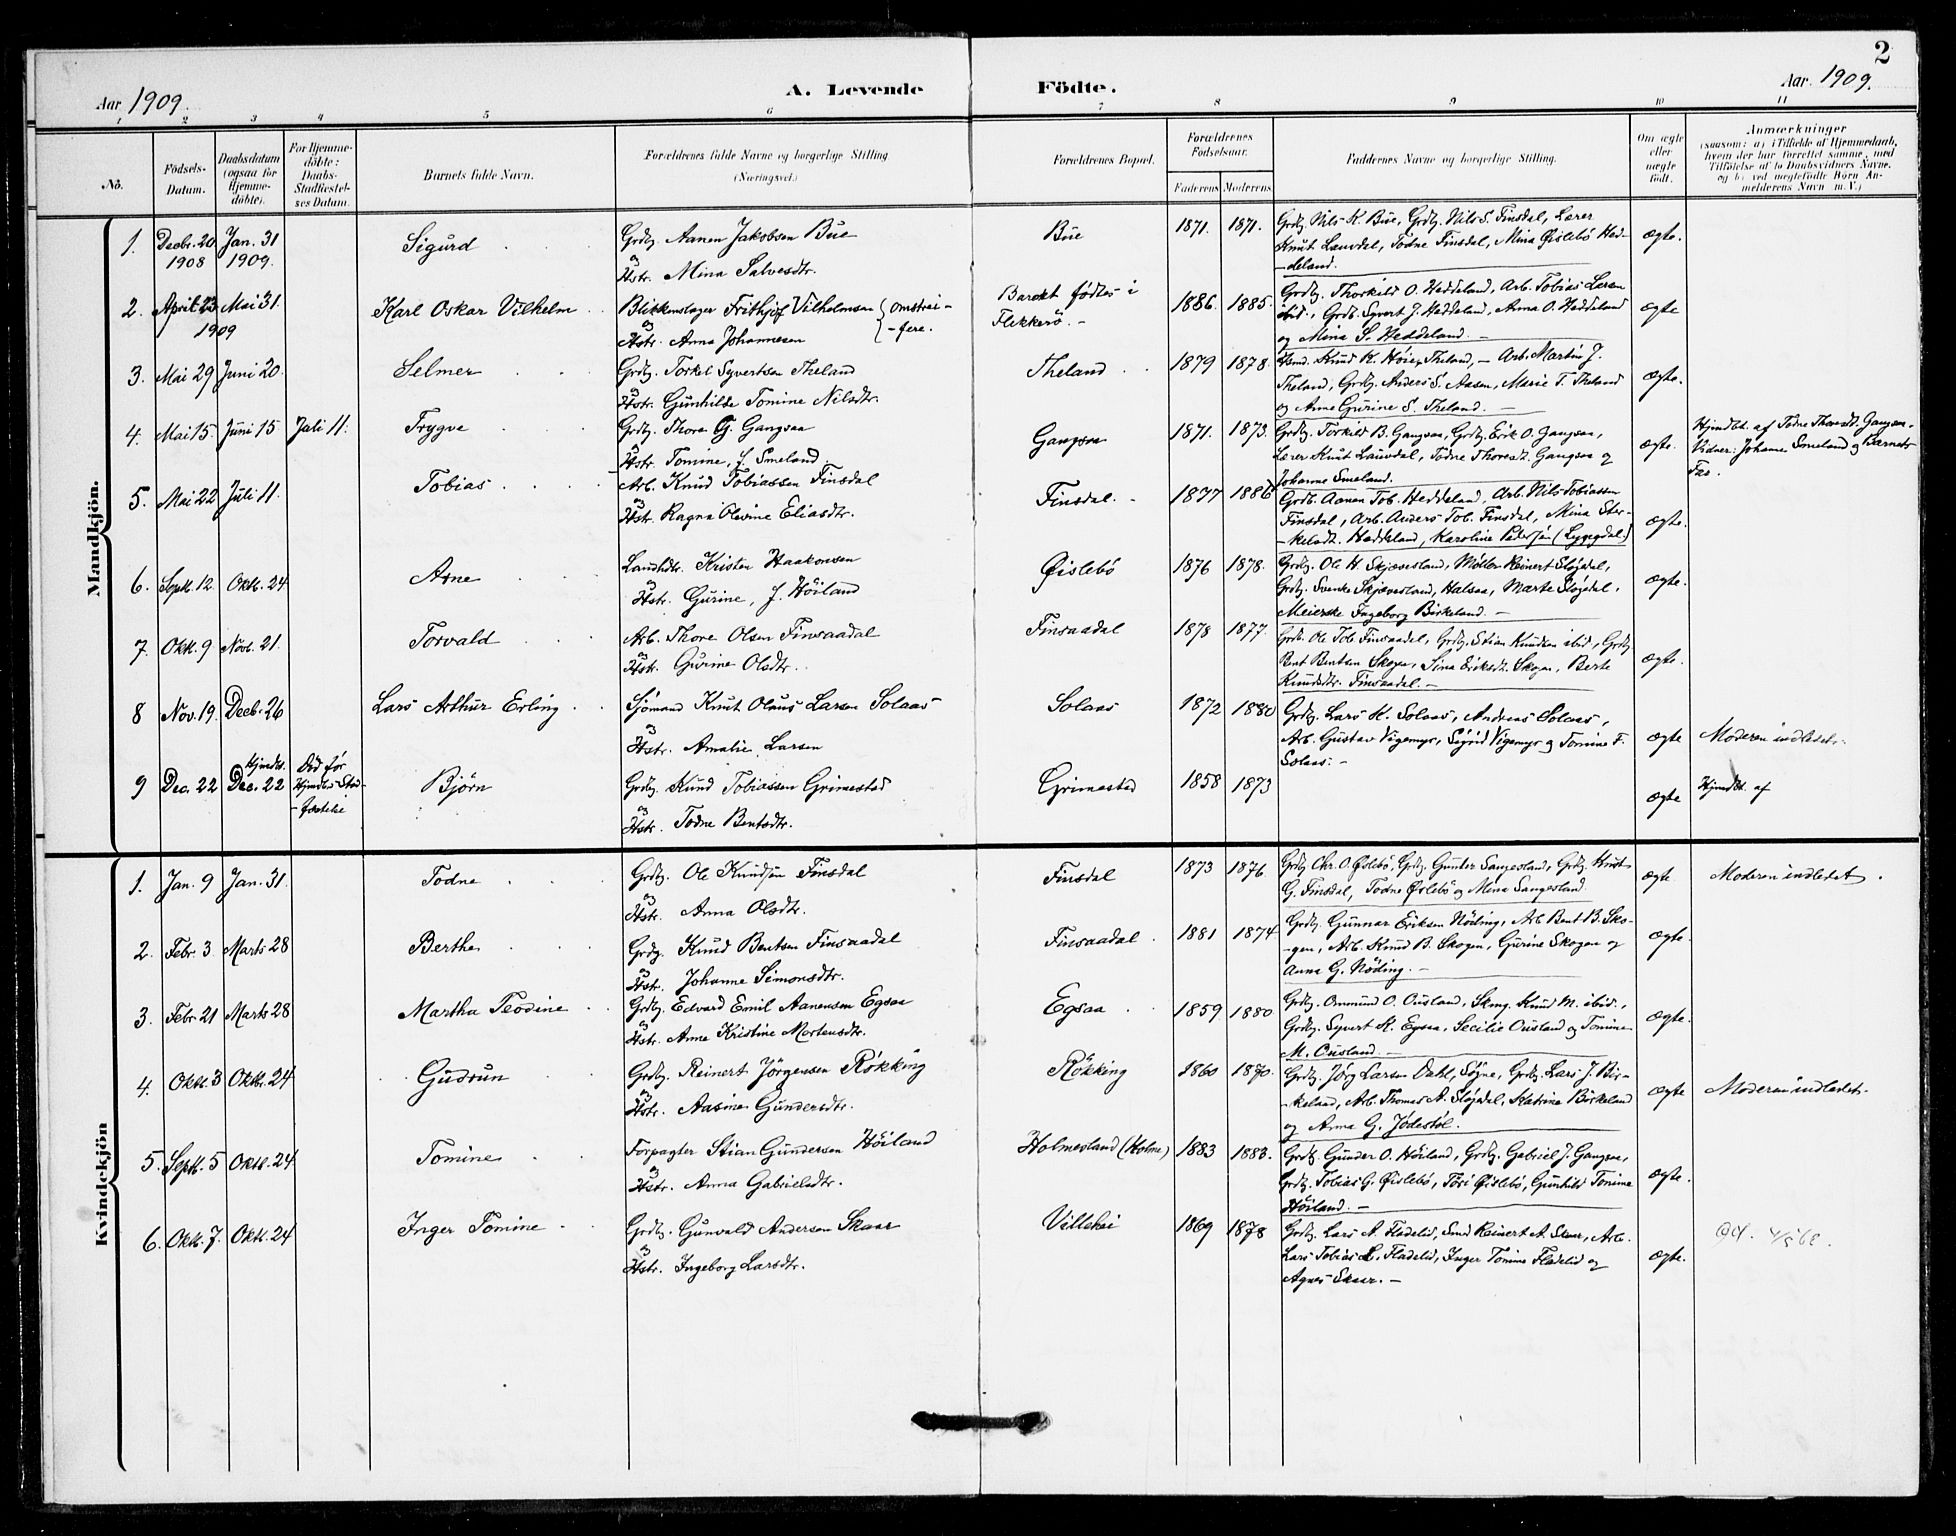 2
Aar 1909. A. Levende Födte. Aar 1909.
1 2 3 4 5 6 7 8 9 10 11
No.
Födsels-
Datum.
Daabsdatum
(ogsaa for
Hjemme-
döbte).
For Hjemme-
döbte:
Daabs-
Stadfæstel-
ses Datum.
Barnets fulde Navn.
Forældrenes fulde Navne og borgerlige Stilling
(Næringsvei.)
Forældrenes Bopæl.
Forældrenes
Födselsaar.
Faderens Moderens
Faddernes Navne og borgerlige Stilling.
Om ægte
eller
uægte
födt.
Anmærkninger
(saasom: a) i Tilfælde af Hjemmedaab,
hvem der har forrettet samme, med
Tilföielse af to Daabsvidners Navne.
og b) ved uægtefödte Börn An-
melderens Navn m. V.)
Mandkjön.
1. Decbr. 20 1908
Jan. 31 1909.
Sigurd
Grdbr. Aanen Jakobsen Bue
og
Hstr. Mina Salvesdtr.
Bue
1871. 1871.
Grdbr. Nils K. Bue, Grdbr. Nils S. Finsdal, Lærer
Knut Lauvdal, Todne Finsdal, Mina Øislebö Hed-
-deland.
ægte.
2. April 23 1909
Mai 31.
Karl Oskar Vilhelm
Blikkenslager Frithjof Vilhelmsen
og
Hstr. Anna Johannesen
omstrei-
-fere.
Barnet födtes i
Flekkerö. -
1886. 1885.
Grdbr. Thorkild O. Heddeland, Arb. Tobias Larsen
ibid., Grdb. Syvert J. Heddeland, Anna O. Heddeland
og Mina S. Heddeland. -
ægte
3. Mai 29 Juni 20.
Selmer
Grdbr. Torkel Syvertsen Theland
og
Hstr. Gunhilde Tomine Nilsdtr.
Theland
1879 1878.
Knud K. Höie, Theland, - Arb. Martin J.
Theland, Grdbr. Anders S. Aasen, Marie T. Theland
og Anne Gurine S. Theland. -
ægte.
4. Mai 15. Juni 15 Juli 11.
Trygve
Grdbr. Thore G. Gangsaa
og
Hstr. Tomine, f. Smeland.
Gangsaa
1871. 1873.
Grdbr. Torkild B. Gangsaa, Grdbr. Erik O. Gangsaa,
Lærer Knut Lauvdal, Todne Thoresdt. Gangsaa og
Johanne Smeland.
ægte.
Hjmdbt. af Todne Thoresdt. Gangsaa.
Vidner: Johanne Smeland og Barnets
Far.
5. Mai 22 Juli 11.
Tobias
Arb. Knud Tobiassen Finsdal
og
Hstr. Ragna Olevine Eliasdtr.
Finsdal. -
1877 1886
Grdb. Aanen Tob. Heddeland, Arb. Nils Tobiassen
Finsdal, Arb. Anders Tob. Finsdal, Mina Ster-
-kelsdt. Heddeland, Karoline Pedersen (Lyngdal.)
ægte.
6. Septr. 12. Oktr. 24
Arne
Landhdlr. Kristen Haakonsen
og
Hstr. Gurine, f. Höiland
Øislebö
1876 1878.
Grdbr. Ole H. Skjævesland, Möller Reinert Stöjdal,
Grdbr. Svenke Skjævesland, Halsaa, Marte Stöjdal,
Meierske Ingeborg Birkeland. -
ægte.
7. Oktr. 9 Novb. 21.
Torvald
Arb. Thore Olsen Finsaadal
og
Hstr. Gurine Olsdtr.
Finsaadal
1878 1877.
Grdb. Ole Tob. Finsaadal, Grdbr. Stian Knudsen ibid, Grdbr.
Bent Bentsen Skogen, Sina Eriksdt. Skogen, Berte
Knudsdtr. Finsaadal. -
ægte.
8 Nov. 19. Decb. 26
Lars Arthur Erling
Sjömand Knut Olaus Larsen Solaas
og
Hstr. Amalie Larsen
Solaas
1872 1880
Grdbr. Lars K. Solaas, Andreas Solaas,
Arb. Gustav Vigemyr, Sigrid Vigemyr og Tomine F.
Solaas. -
ægte
Moderen indledet.
9 Dec. 22
Hjmdbt.
Dec. 22
Död för
Hjmdbs Stad-
-fæstelse
Björn
Grdbr. Knud Tobiassen Grimestad
og
Hstr. Todne Bentsdtr.
Grimestad
1858 1873
ægte
Hjmdbt. af
Kvindekjön
1. Jan. 9 Jan. 31.
Todne
Grdbr. Ole Knudsen Finsdal
og
Hstr. Anna Olsdtr.
Finsdal
1873 1876.
Grdbr. Chr. O. Øislebö, Grdbr. Gunder Sangesland, Grdbr. Knut
G. Finsdal, Todne Øislebö og Mina Sangesland.
ægte
Moderen indledet.
2. Febr. 3. Marts 28
Berthe
Grdbr. Knud Bentsen Finsaadal
og
Hstr. Johanne Simonsdtr.
Finsaadal.
1881 1874
Grdbr. Gunnar Eriksen Nöding, Arb. Bent B. Sko-
-gen, Arb. Knud B. Skogen, Gurine Skogen og
Anna G. Nöding. -
ægte.
3. Febr. 21 Marts 28
Martha Teodine
Grdbr. Edvard Emil Aanensen Egsaa
og
Hstr. Anne Kristine Mortensdtr.
Egsaa
1859 1880
Grdbr. Ommund O. Ousland, Knud M. ibid.,
Grdbr. Syvert K. Egsaa, Secilie Ousland og Tomine
M. Ousland. -
ægte.
4. Oktr. 3 Oktr. 24
Gudrun
Grdbr. Reinert Jörgensen Rökking
og
Hstr. Aasine Gundersdtr.
Rökking
1860 1870.
Grdbr. Jörg Larsen Dahl, Søgne, Grdbr. Lars J. Bir-
-keland, Arb. Thomas A. Stöjdal, Katrine Birkeland
og Anna G. Jödestöl.
ægte
Moderen indledet.
5. Septr. 5 Oktr. 24
Tomine
Forpagter Stian Gundersen Höiland
og
Hstr. Anna Gabrielsdtr.
Holmesland (Holme)
1883 1883.
Grdbr. Gunder O. Höiland, Grdbr. Gabriel J. Gangsaa,
Grdbr. Tobias G. Øislebö, Tori Øislebö, Gunhild Tomine
Höiland. -
ægte.
6. Oktr. 7. Oktr. 24
Inger Tomine
Grdbr. Gunvald Andersen Skaar
og
Hstr. Ingeborg Larsdtr.
Villehei
1869 1878
Grdbr. Lars A. Fladelid, Smd Reinert A. Skaar, Arb.
Lars Tobias L. Fladelid, Inger Tomine Fladelid og
Agnes Skaar. -
ægte.